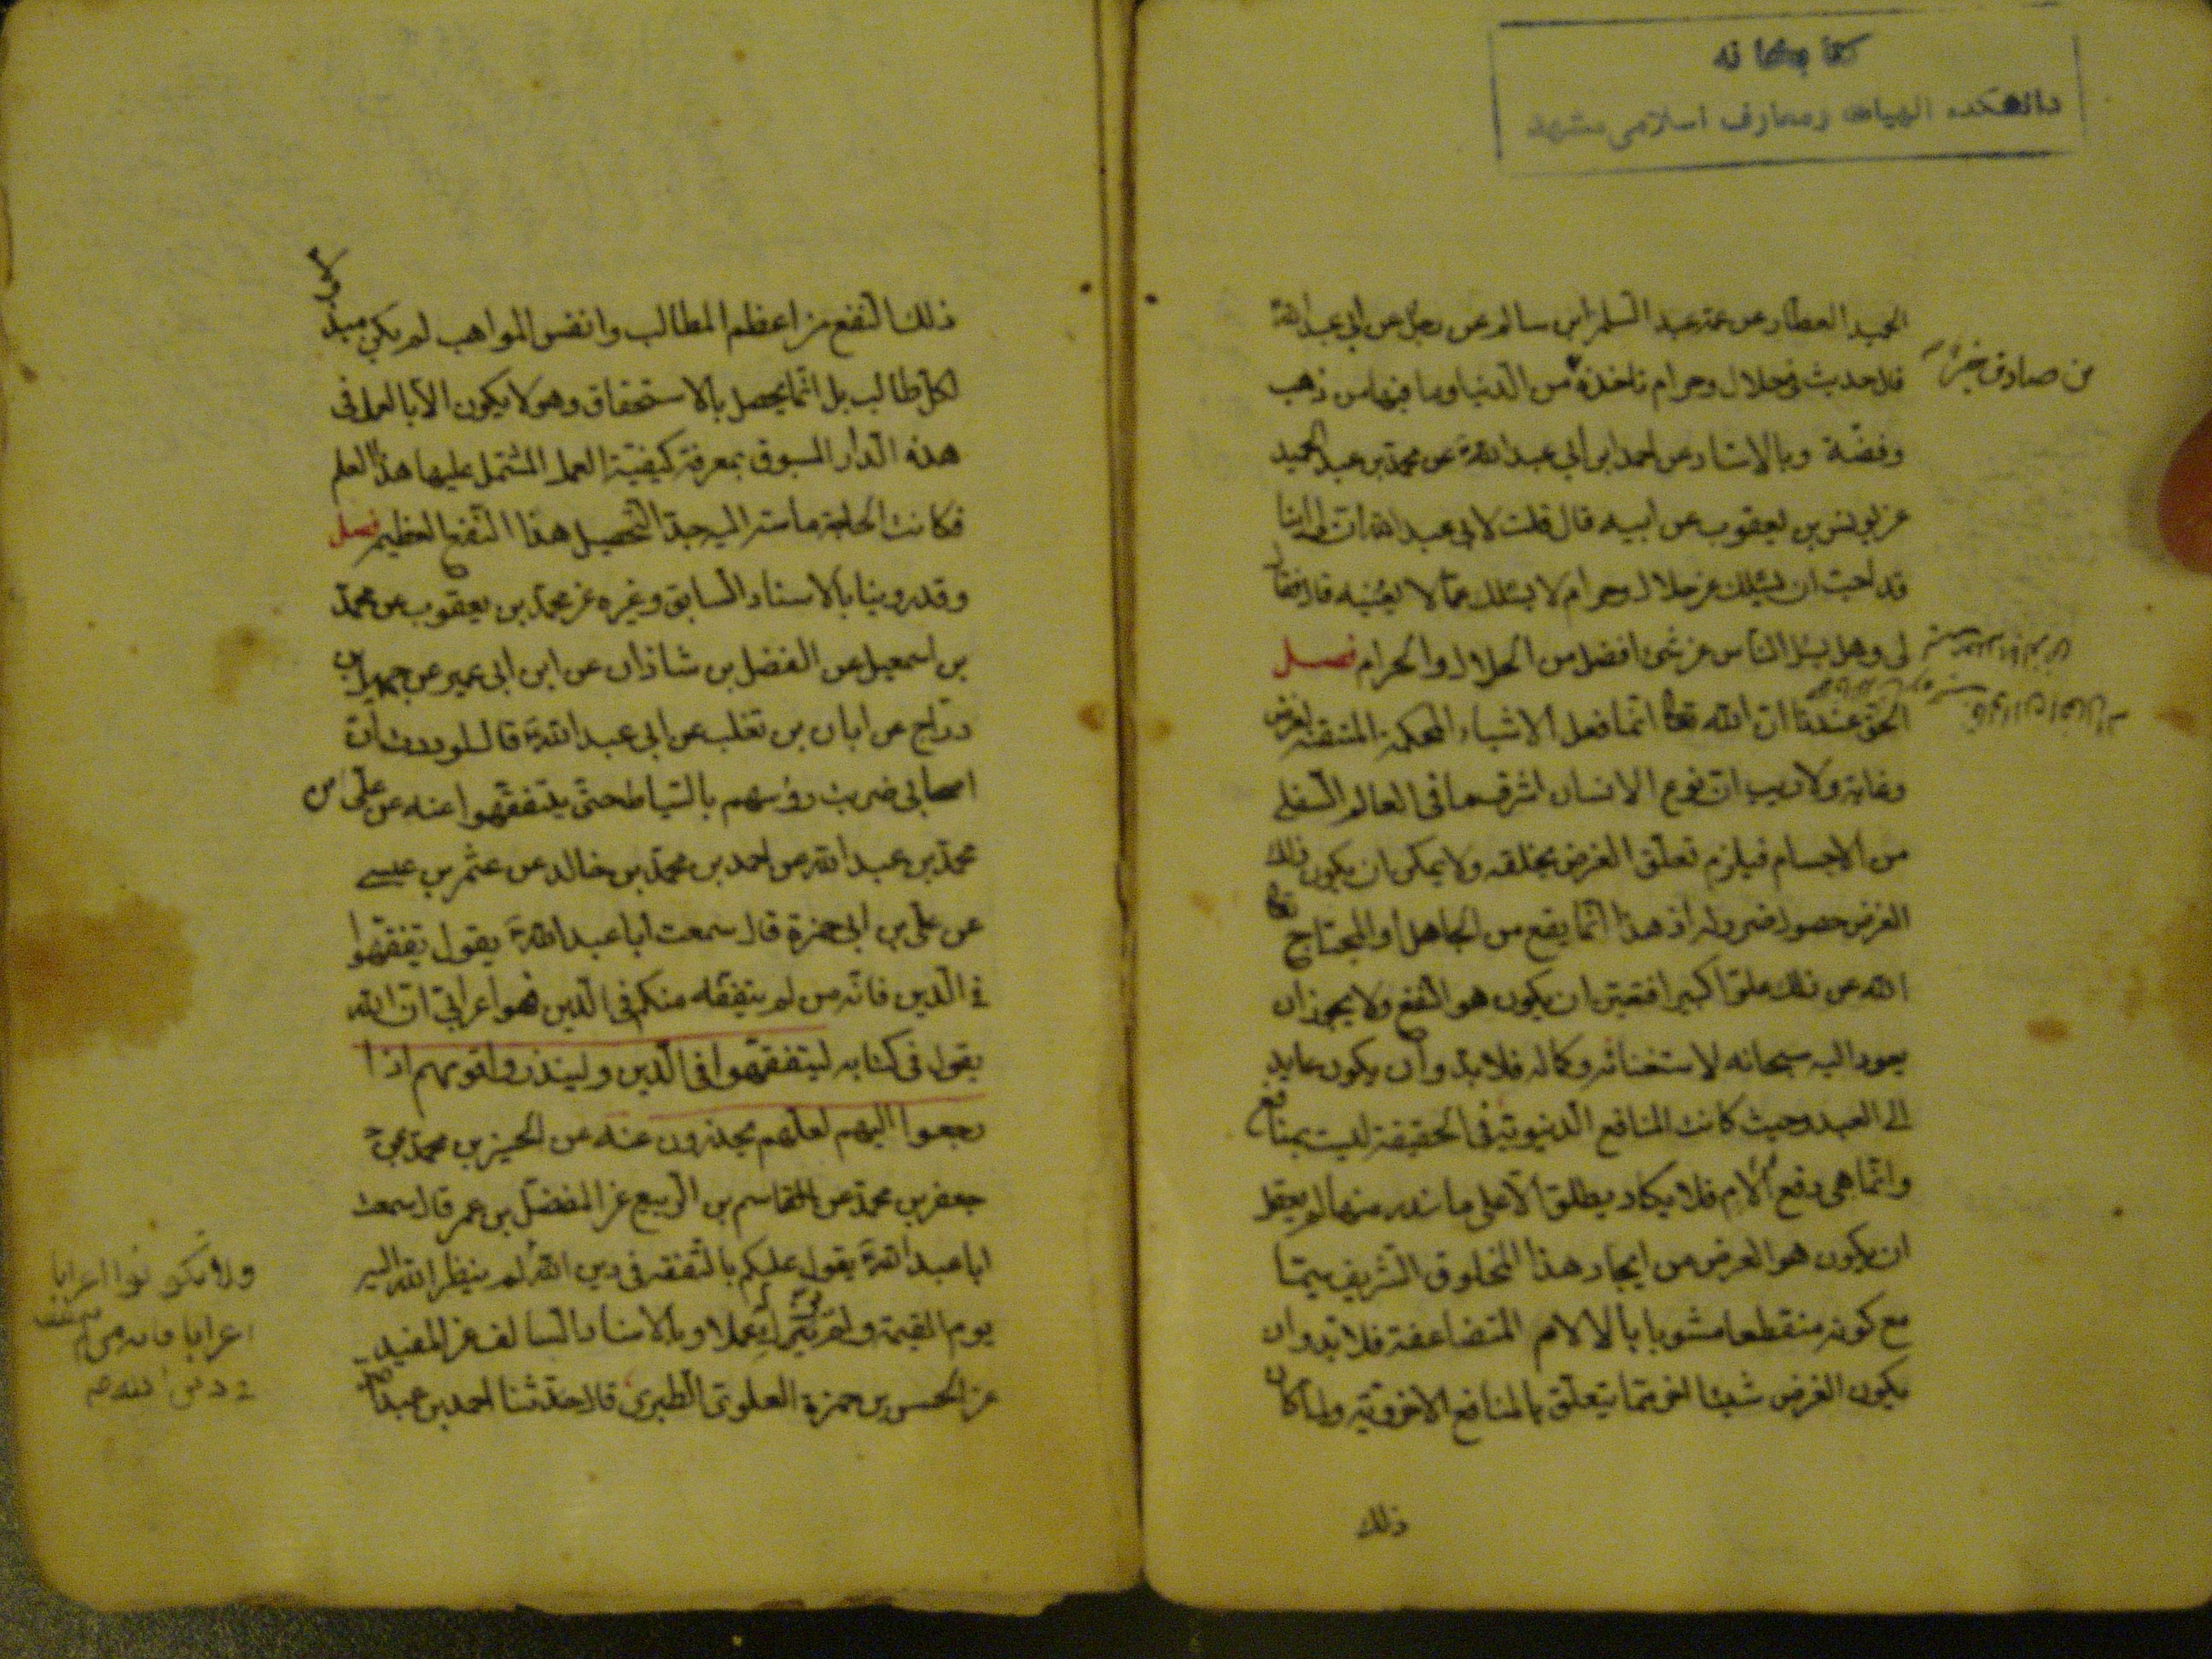 كتابخانه
دانشکده الهیات و معارف اسلامی مشهد
الحميد العطار عن عمه عبد السلم ابن سالم عن رجل عن ابي عبد الله ع
قال حديث في حلال وحرام تاخذه من الدنيا وما فيها من ذهب
من صادق خير
وفضة وبالاسناد عن احمد ابن ابي عبد الله ع عن محمد بن عبد الحميد
عن يونس بن يعقوب عن ابيه قال قلت لابي عبد الله ان لي ابنا
قد احب ان يسئلك عن حلال وحرام لا يسئلك عما لا يعنيه قال فقال
لي وهل يسئل الناس عن شئ افضل من الحلال والحرام فصل
الحق عندنا ان الله تعالى انما فعل الاشياء المحكمة المتقنة لغرض
وغاية ولا ريب ان نوع الانسان اشرف ما في العالم السفلي
من الاجسام فيلزم تعلق الغرض بخلقه ولا يمكن ان يكون ذلك
الغرض حصول ضرر له اذ هذا انما يقع من الجاهل او المحتاج تعالى
الله عن ذلك علوا كبيرا فتعين ان يكون هو النفع ولا يجوز ان
يعود اليه سبحانه لاستغنائه وكماله فلا بد وان يكون عايد
الى العبد وحيث كانت المنافع الدنيوية في الحقيقة ليست بمنافع
وانما هي دفع الالام فلا يكاد يطلق الا على ما ندر منها لم يعقل
ان يكون هو الغرض من ايجاد هذا المخلوق الشريف سيما
مع كونه منقطعا مشوبا بالالام المتضاعفة فلا بد وان
يكون الغرض شيئا اخر مما يتعلق بالمنافع الاخروية ولما كان
ذلك
ذلك النفع من اعظم المطالب وانفس المواهب لم يكن مبذولا
لكل طالب بل انما يحصل بالاستحقاق وهو لا يكون الا بالعمل في
هذه الدار المسبوق بمعرفة كيفية العمل المشتمل عليها هذا العلم
فكانت الحاجة ماسة اليه جدا لتحصيل هذا النفع العظيم فصل
وقد روينا بالاسناد السابق وغيره عن محمد بن يعقوب عن محمد
بن اسمعيل عن الفضل بن شاذان عن ابن ابي عمير عن جميل بن
دراج عن ابان بن تغلب عن ابي عبد الله ع قال لوددت ان
اصحابي ضربت رؤسهم بالسياط حتى يتفقهوا عنه عن علي بن
محمد بن عبد الله عن احمد بن محمد بن خالد عن عثمن بن عيسى
عن علي بن ابي حمزة قال سمعت ابا عبد الله ع يقول تفقهوا
في الدين فانه من لم يتفقه منكم في الدين فهو اعرابي ان الله
يقول في كتابه ليتفقهوا في الدين ولينذروا قومهم اذا
رجعوا اليهم لعلهم يحذرون عنه عن الحسين بن محمد عن
جعفر بن محمد عن القاسم بن الربيع عن المفضل بن عمر قال سمعت
ابا عبد الله ع يقول عليكم بالتفقه في دين الله لم ينظر الله اليه
يوم القيمة ولم يزك له عملا وبالاسناد السالف عن المفيد
عن الحسن بن حمزة العلوي الطبري قال حدثنا احمد بن عبد الله
ولا تكونوا اعرابا
اعرابا فانه من لم يتفقه
في دين الله